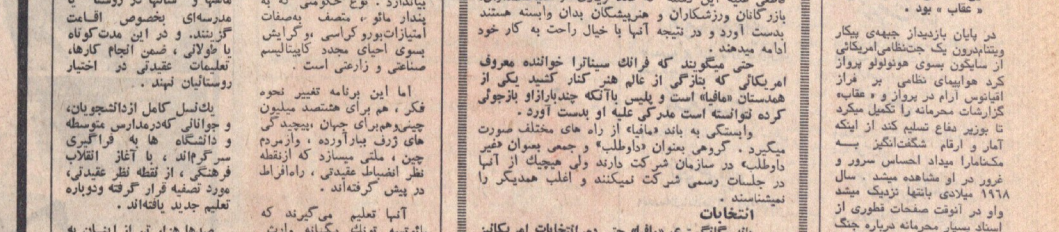 « عقاب » بود .
در پایان بازدیداز جبهه‌ی پیکار
ویتنام‌درون یک جت‌نظامی‌امریکائی
از سایگون بسوی هونولولو پرواز
کرد هواپیمای نظامی بر فراز
اقیانوس آرام در پرواز و « عقاب»
گزارشات محرمانه را تکمیل میکرد
تا بوزیر دفاع تسلیم کند از اینکه
آمار و ارقام شگفت‌انگیز بسه
مک‌نامارا میداد احساس سرور و
غرور در او مشاهده میشد . سال
۱۹۶۸ میلادی بانتها نزدیک میشد
واو در آنوقت صفحات قطوری از
اسناد بسیار محرمانه درباره جنگ
بازرگانان ورزشکاران و هنرپیشگان بدان وابسته هستند
بدست آورد و در نتیجه آنها با خیال راحت به کار خود
ادامه میدهند .
حتی میگویند که فرانك سیناترا خواننده معروف
امریکائی که بتازگی از عالم هنر کنار کشید یکی از
همدستان «مافیا» است و پلیس باآنکه چندباراز‌او بازجوئی
کرده نتوانسته است مدرکی علیه او بدست آورد .
وابستگی به باند «مافیا» از راه های مختلف صورت
میگیرد . گروهی بعنوان «داوطلب» و جمعی بعنوان «غیر
داوطلب» در سازمان شرکت دارند ولی هیچیك از آنها
در جلسات رسمی شرکت نمیکنند و اغلب همدیگر را
نمیشناسند .
انتخابات
بیاندارد . نوع حکومتی که به
پندار مائو ، متصف بصفات
امتیازات‌بوروکراسی ،وگرایش
بسوی احیای مجدد کاپیتالیسم
صنعتی و زارعتی است .
اما این برنامه تغییر نحوه
فکر ، هم برای هشتصد میلیون
چینی‌وهم‌برای جهان ،پیچیدگی
های ژرف ببارآورده ، وازمردم
چین ، ملتی میسازد که ازنقطه
نظر انضباط عقیدتی ، راه‌افراط
در پیش گرفته‌اند .
آنها تعلیم می‌گیرند که
مدرسه‌ای بخصوص اقسامت
گزینند. و در این مدت‌کوتاه
یا طولانی ، ضمن انجام کارها،
تعلیمات عقیدتی در اختیار
روستائیان نهند .
یك‌نسل کامل ازدانشجویان،
و جوانانی که‌درمدارس متوسطه
و دانشگاه ها به فراگیری
سرگرم‌اند ، با آغاز انقلاب
فرهنگی ، از نقطه نظر عقیدتی،
مورد تصفیه قرار گرفته ودوباره
تعلیم جدید یافته‌اند .